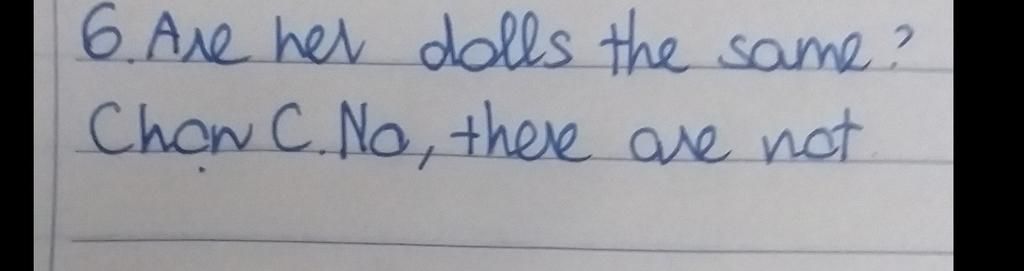 6. Are her dolls the same?
Chọn C. No, there are not